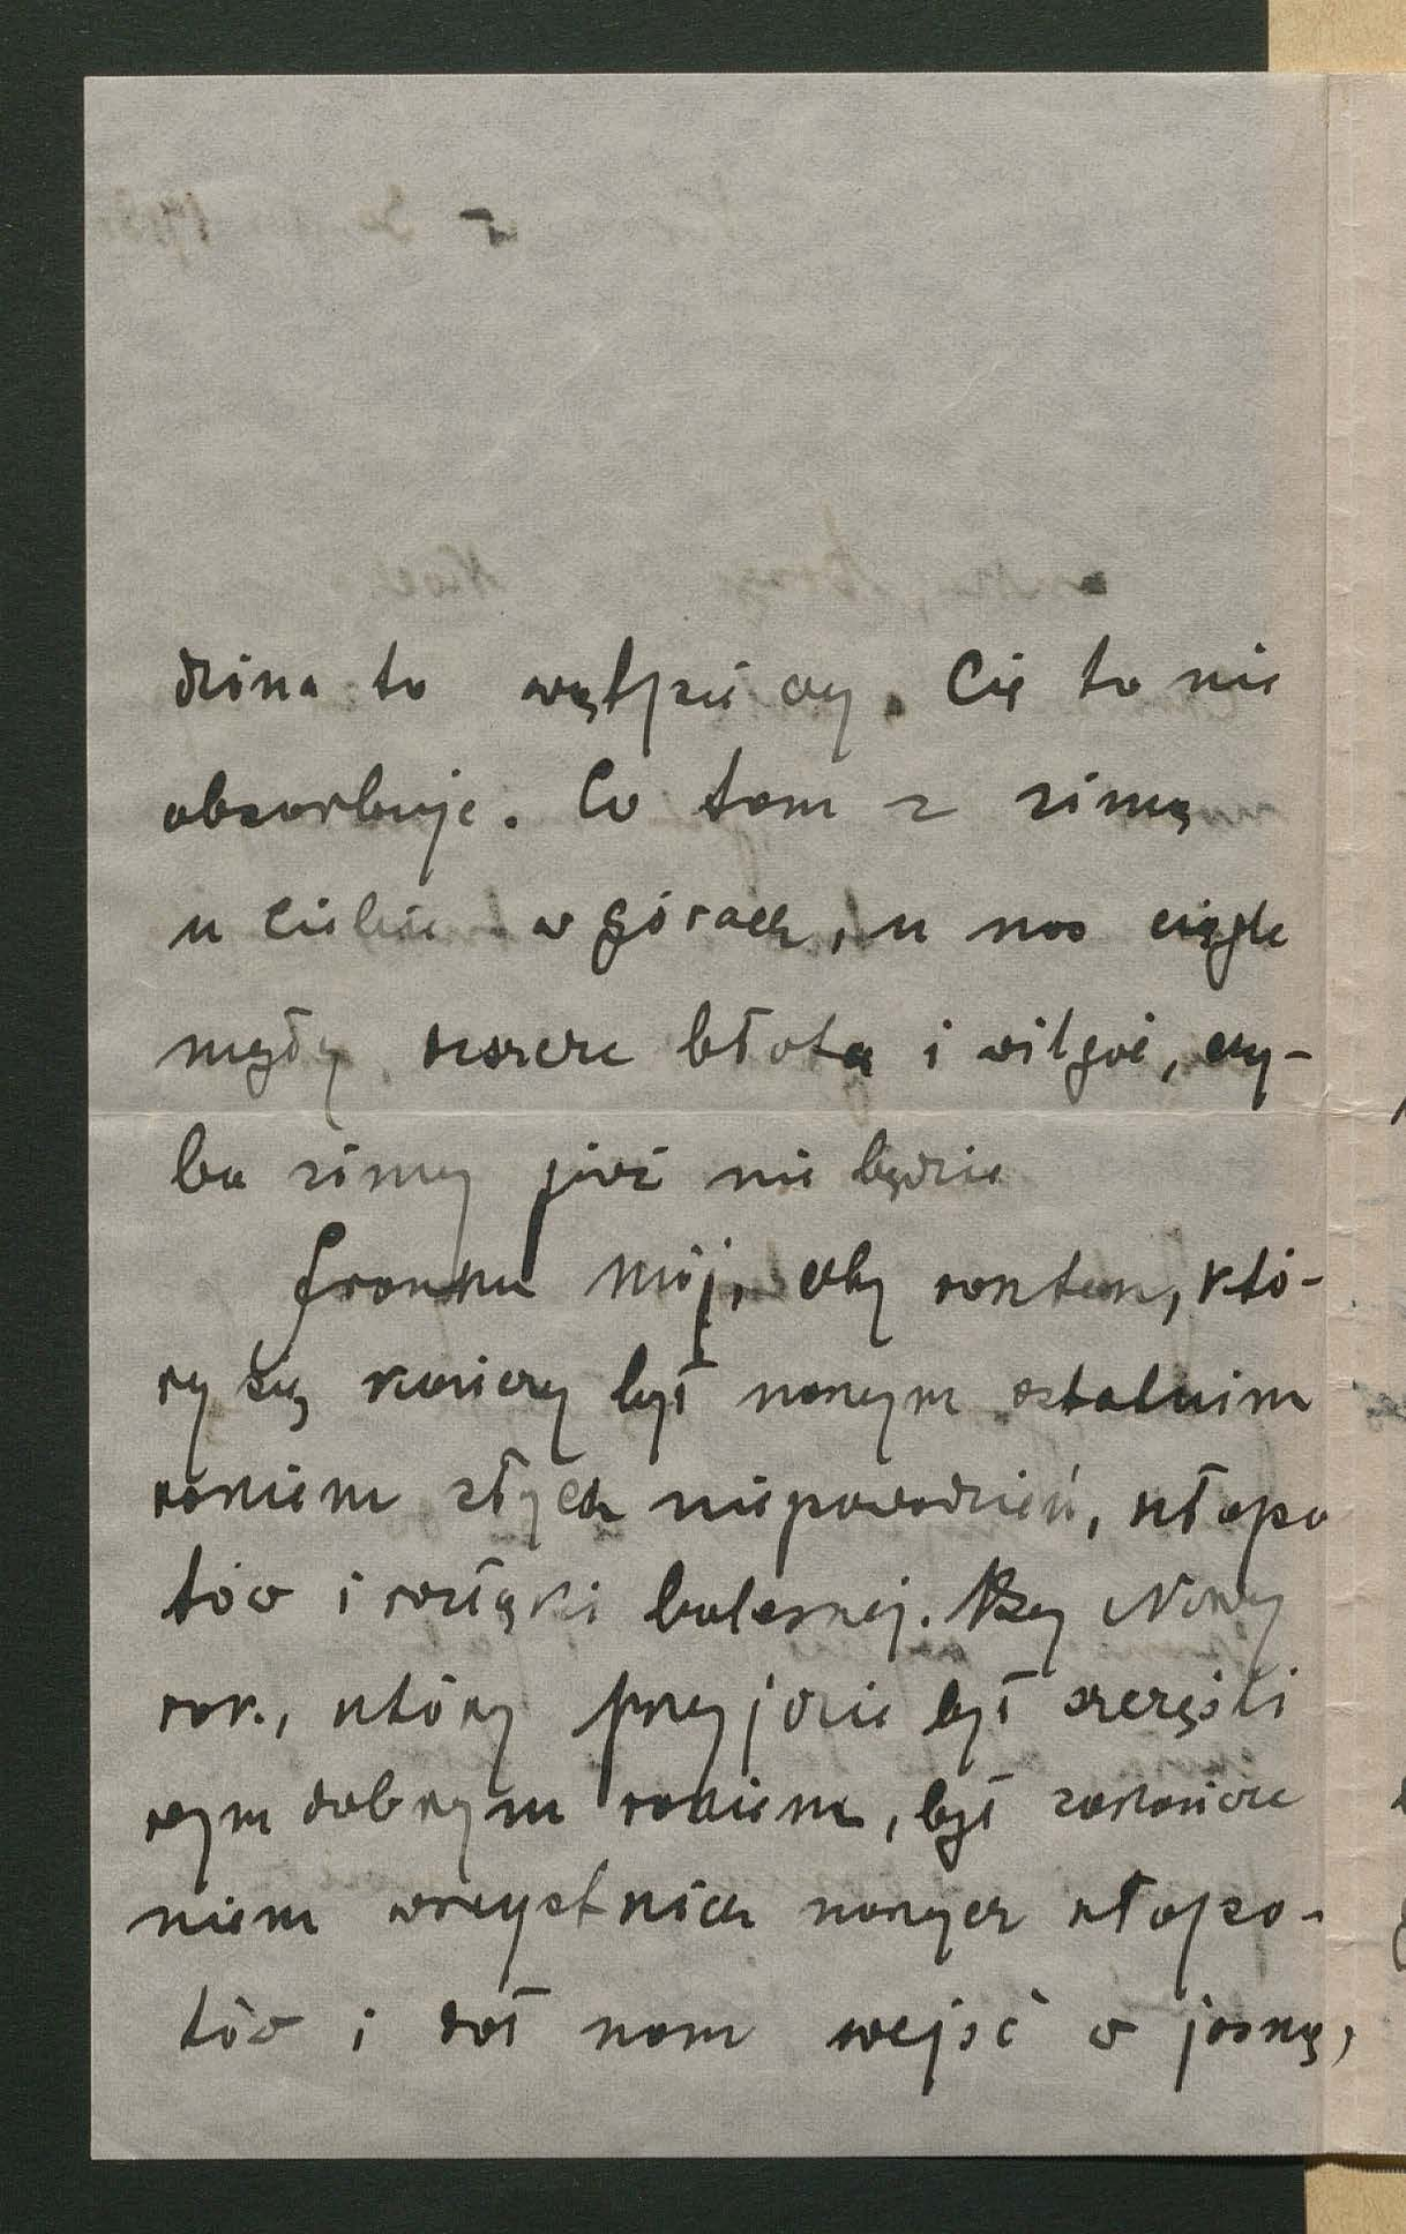 dzina to wątpię czy. Cię to nie
absorbuje. Co tam z zimą
u Ciebie w górach, u nas ciągle
mgły deszcze błota i wilgoć, chy-
ba zimy już nie będzie
Franku mój, oby rok ten, któ-
ry się kończy był naszym ostatnim
rokiem złych niepowodzeń, kłopo
tów i rozłąki bolesnej. By Nowy
rok, który przyjdzie był szczęśli
wym dobrym rokiem, był zakończe
niem wszystkich naszych kłopo-
tów i dał nam wejść w jasną,